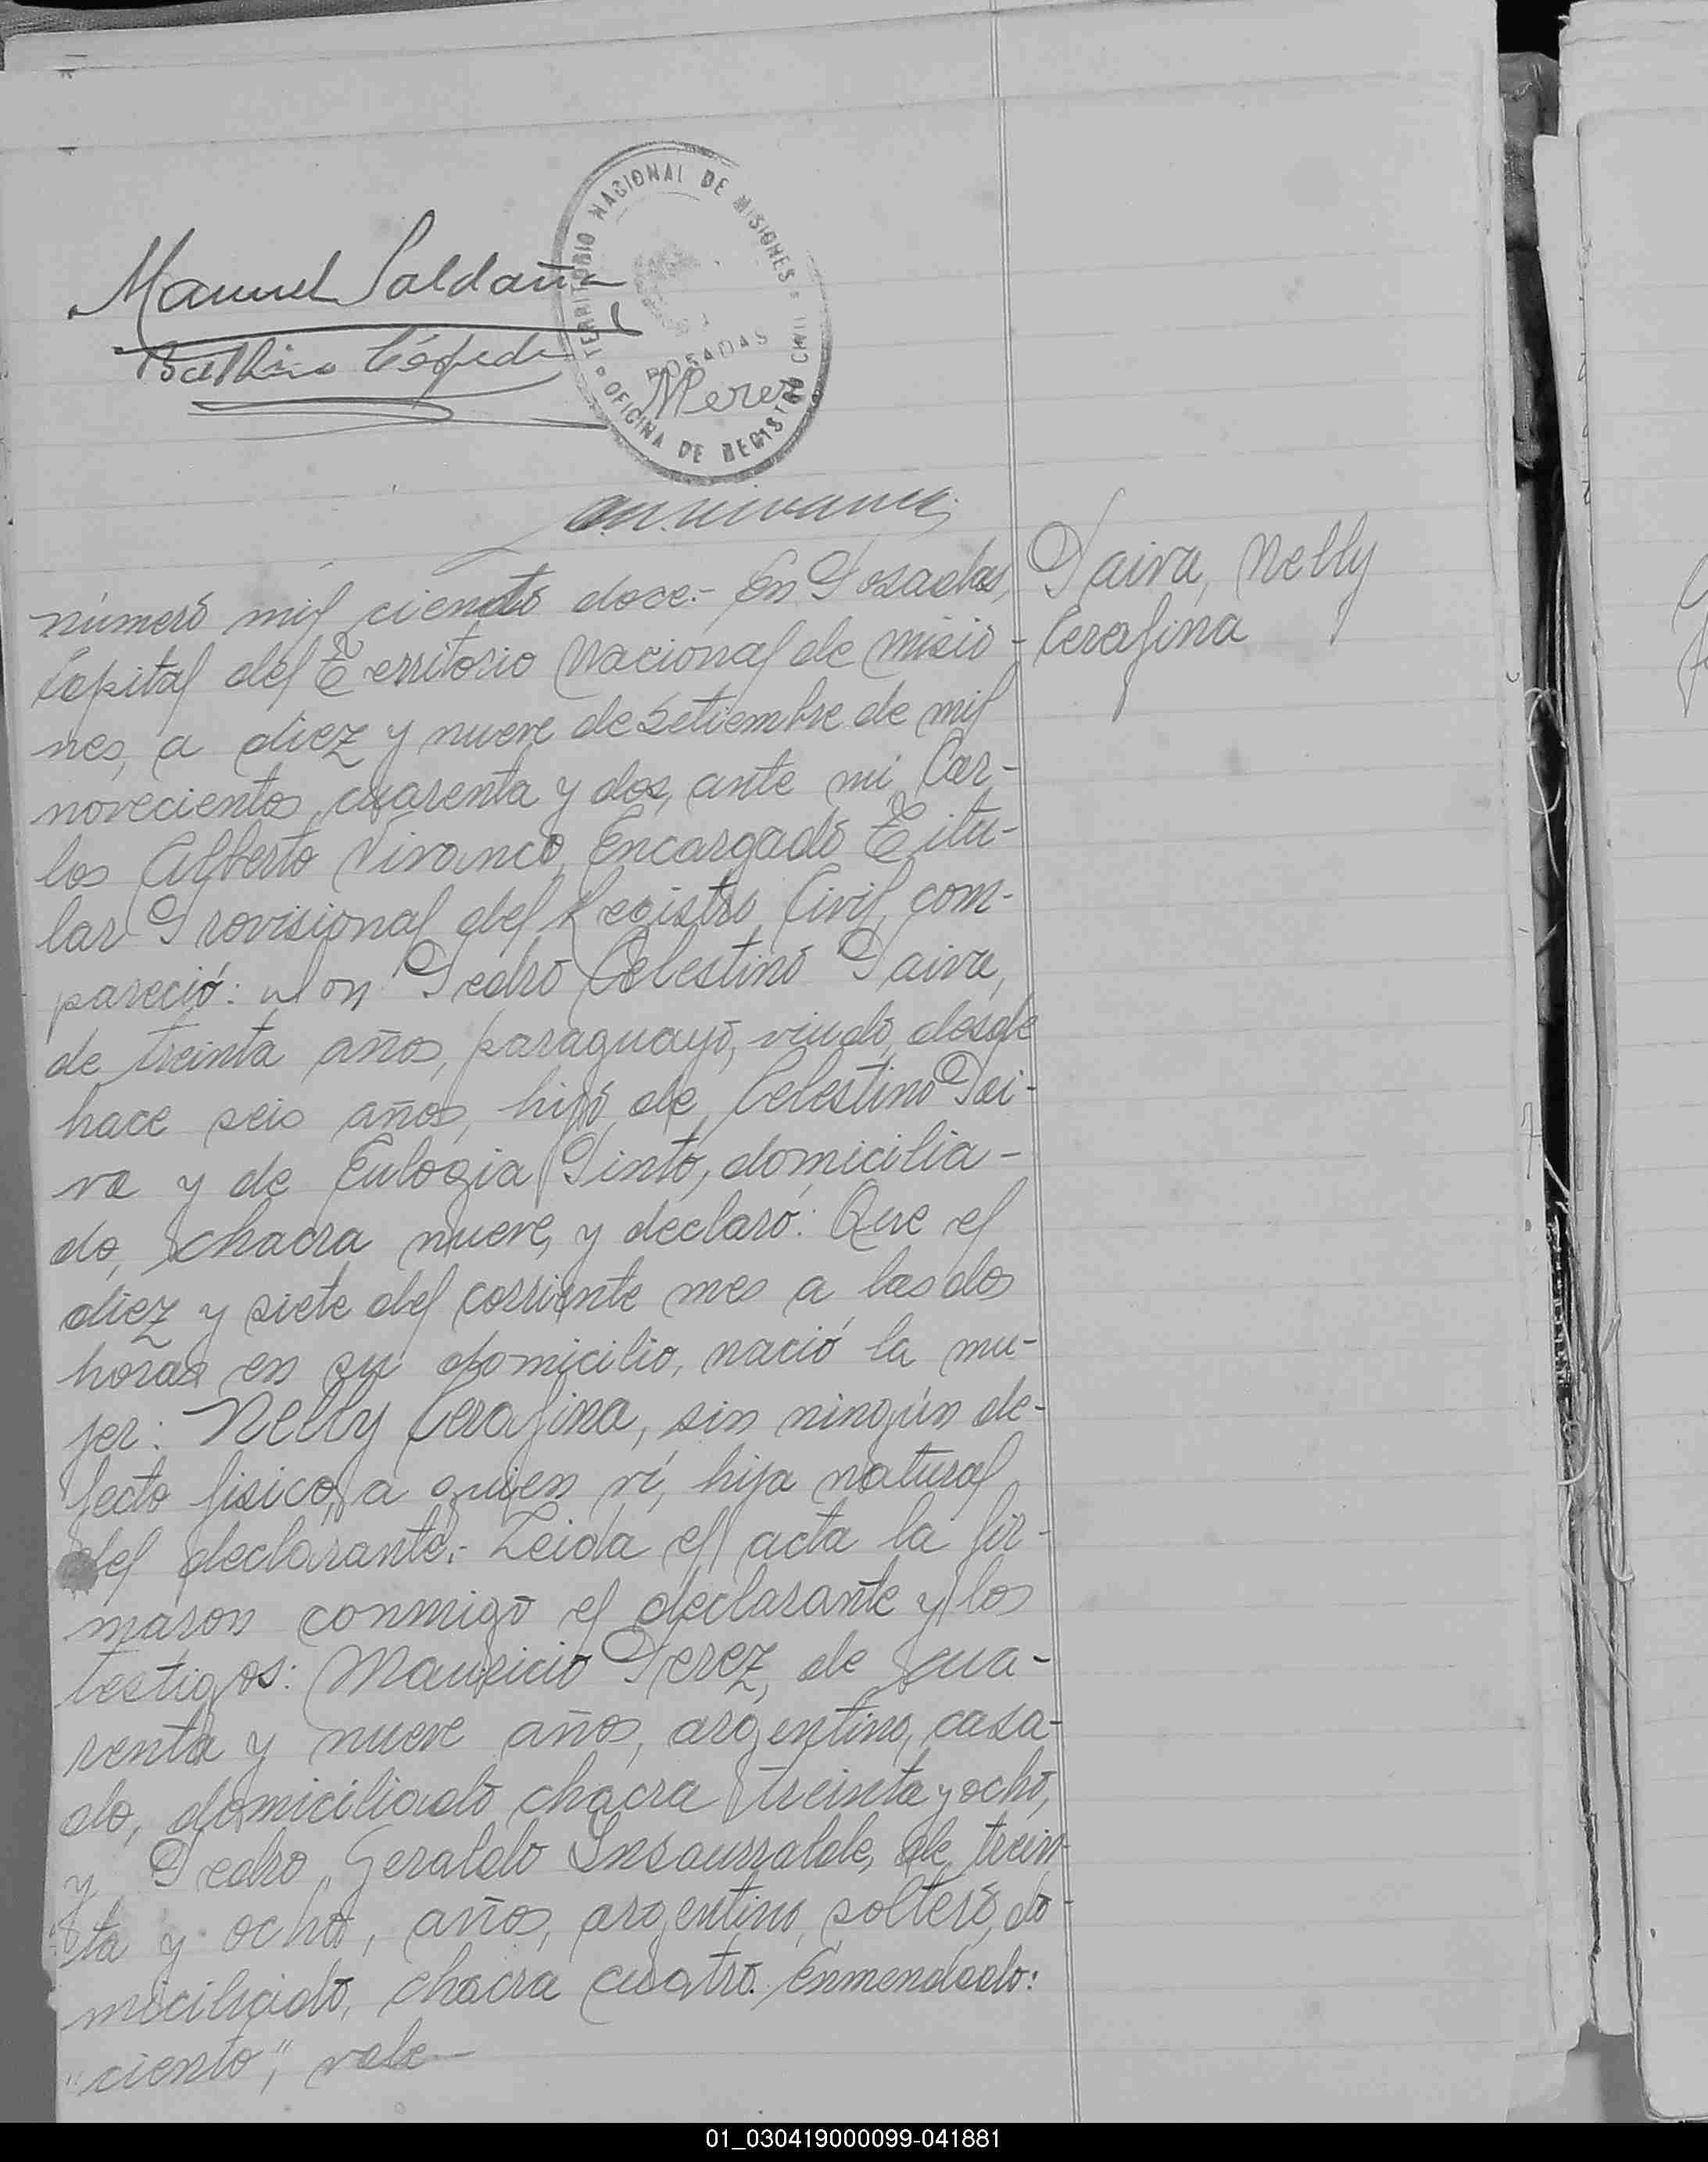 TERRITORIO NACIONAL DE MISIONES
Manuel Saldaña
POSADAS
MPerez
OFICINA DE REGISTRO CIVIL
número mil ciento doce.- En Posadas,
Paiva, Nelly
Capital del Territorio Nacional de Misio-
Cerafina
nes, a diez y nueve de Setiembre de mil
novecientos cuarenta y dos, ante mi Car-
los Alberto Vivanco, Encargado Titu-
lar Provisional del Registro Civil, com-
pareció: Don Pedro Celestino Paiva,
de treinta años, paraguayo, viudo, desde
hace seis años, hijo de Celestino Pai-
va y de Eulogia Pinto, domicilia-
do, chacra nueve, y declaró: Que el
diez y siete del corriente mes a las dos
horas en su domicilio, nació la mu-
jer: Nelly Cerafina, sin ningún de-
fecto fisico, a quien ví, hija natural
del declarante.- Leida el acta la fir-
maron conmigo el declarante y los
testigos: Mauricio Perez, de cua-
renta y nueve años, argentino, casa-
do, domiciliado chacra treinta y ocho,
y Pedro Geraldo Insaurralde, de trein-
ta y ocho, años, argentino, soltero, do-
miciliado, chacra cuatro. Enmendado:
"ciento", vale.-
01_030419000099-041881